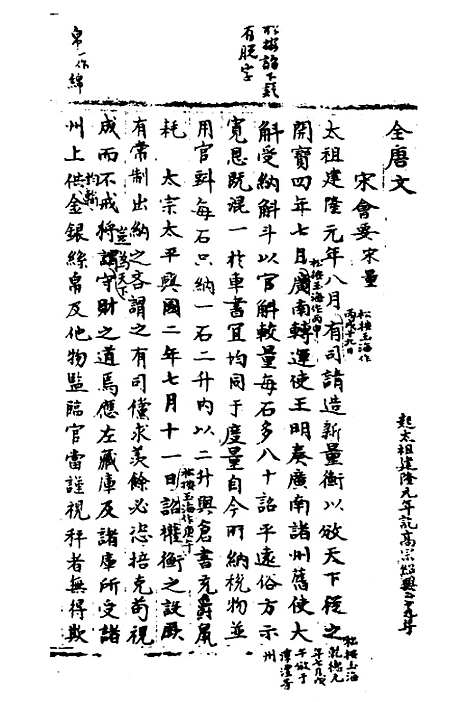 全唐文
宋會要宋量
太祖建隆元年八月有司請造新量衡以放天下從之
開寶四年七月廣南轉運使王明奏廣南諸州舊使大
斛受納斛斗以官斛較量每石多八十詔平遠俗方示
寬恩既混一於車書宜均同于度量自今所納稅物並
用官斛每石只納一石二升內以二升與倉書充爵鼠
耗 太宗太平興國二年七月十一日詔權衡之設厥
有常制出納之吝謂之有司儻求羨餘必恣掊克苟視
成而不戒將謂守財之道焉應左藏庫及諸庫所受諸
州上供金銀絲帛及他物監臨官當謹視秤者無得欺
起太祖建隆元年訖高宗紹興二十九年
松按玉海作
丙戌十九日
松按玉海作丙申
松按玉海
乾德元
年七月戊
午放于
潭澧等
州
松按玉海作庚午
豈為天下
均輸
松按詔下疑
有脫字
帛一作綿